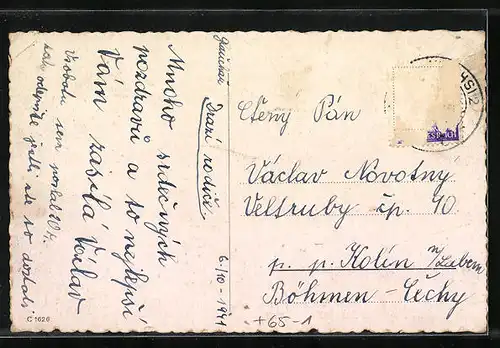 Drazí rodiče.
6./10 - 1941
Mnoho srdečných
pozdravů a to nejlepší
Vám zasílá Václav
V sobotu sem poslal 20
tak odepište jestli ste to dostali.
C 1626
Ctěný Pán
Václav Novotny
Veltruby čp. 10
p. p. Kolín n/Labem
Böhmen - Čechy
+65-1